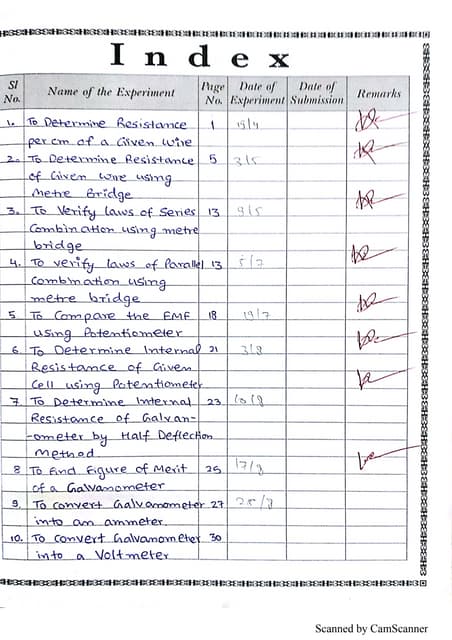 Index
Sl No. Name of the Experiment Page No. Date of Experiment Date of Submission Remarks
1. To Determine Resistance 1 15/4
per cm of a Given wire
2. To Determine Resistance 5 3/5
of Given wire using
Metre Bridge
3. To Verify laws of Series 13 9/5
Combination using metre
bridge
4. To verify laws of Parallel 13 5/7
Combination using
metre bridge
5 To Compare the EMF 18 19/7
using Potentiometer
6. To Determine Internal 21 3/8
Resistance of Given
Cell using Potentiometer
7. To Determine Internal 23
Resistance of Galvan-
-ometer by Half Deflection
Method.
8 To Find Figure of Merit 25
of a Galvanometer
9. To convert Galvanometer 27
into an ammeter.
10. To Convert Galvanometer 30
into a Voltmeter
Scanned by CamScanner